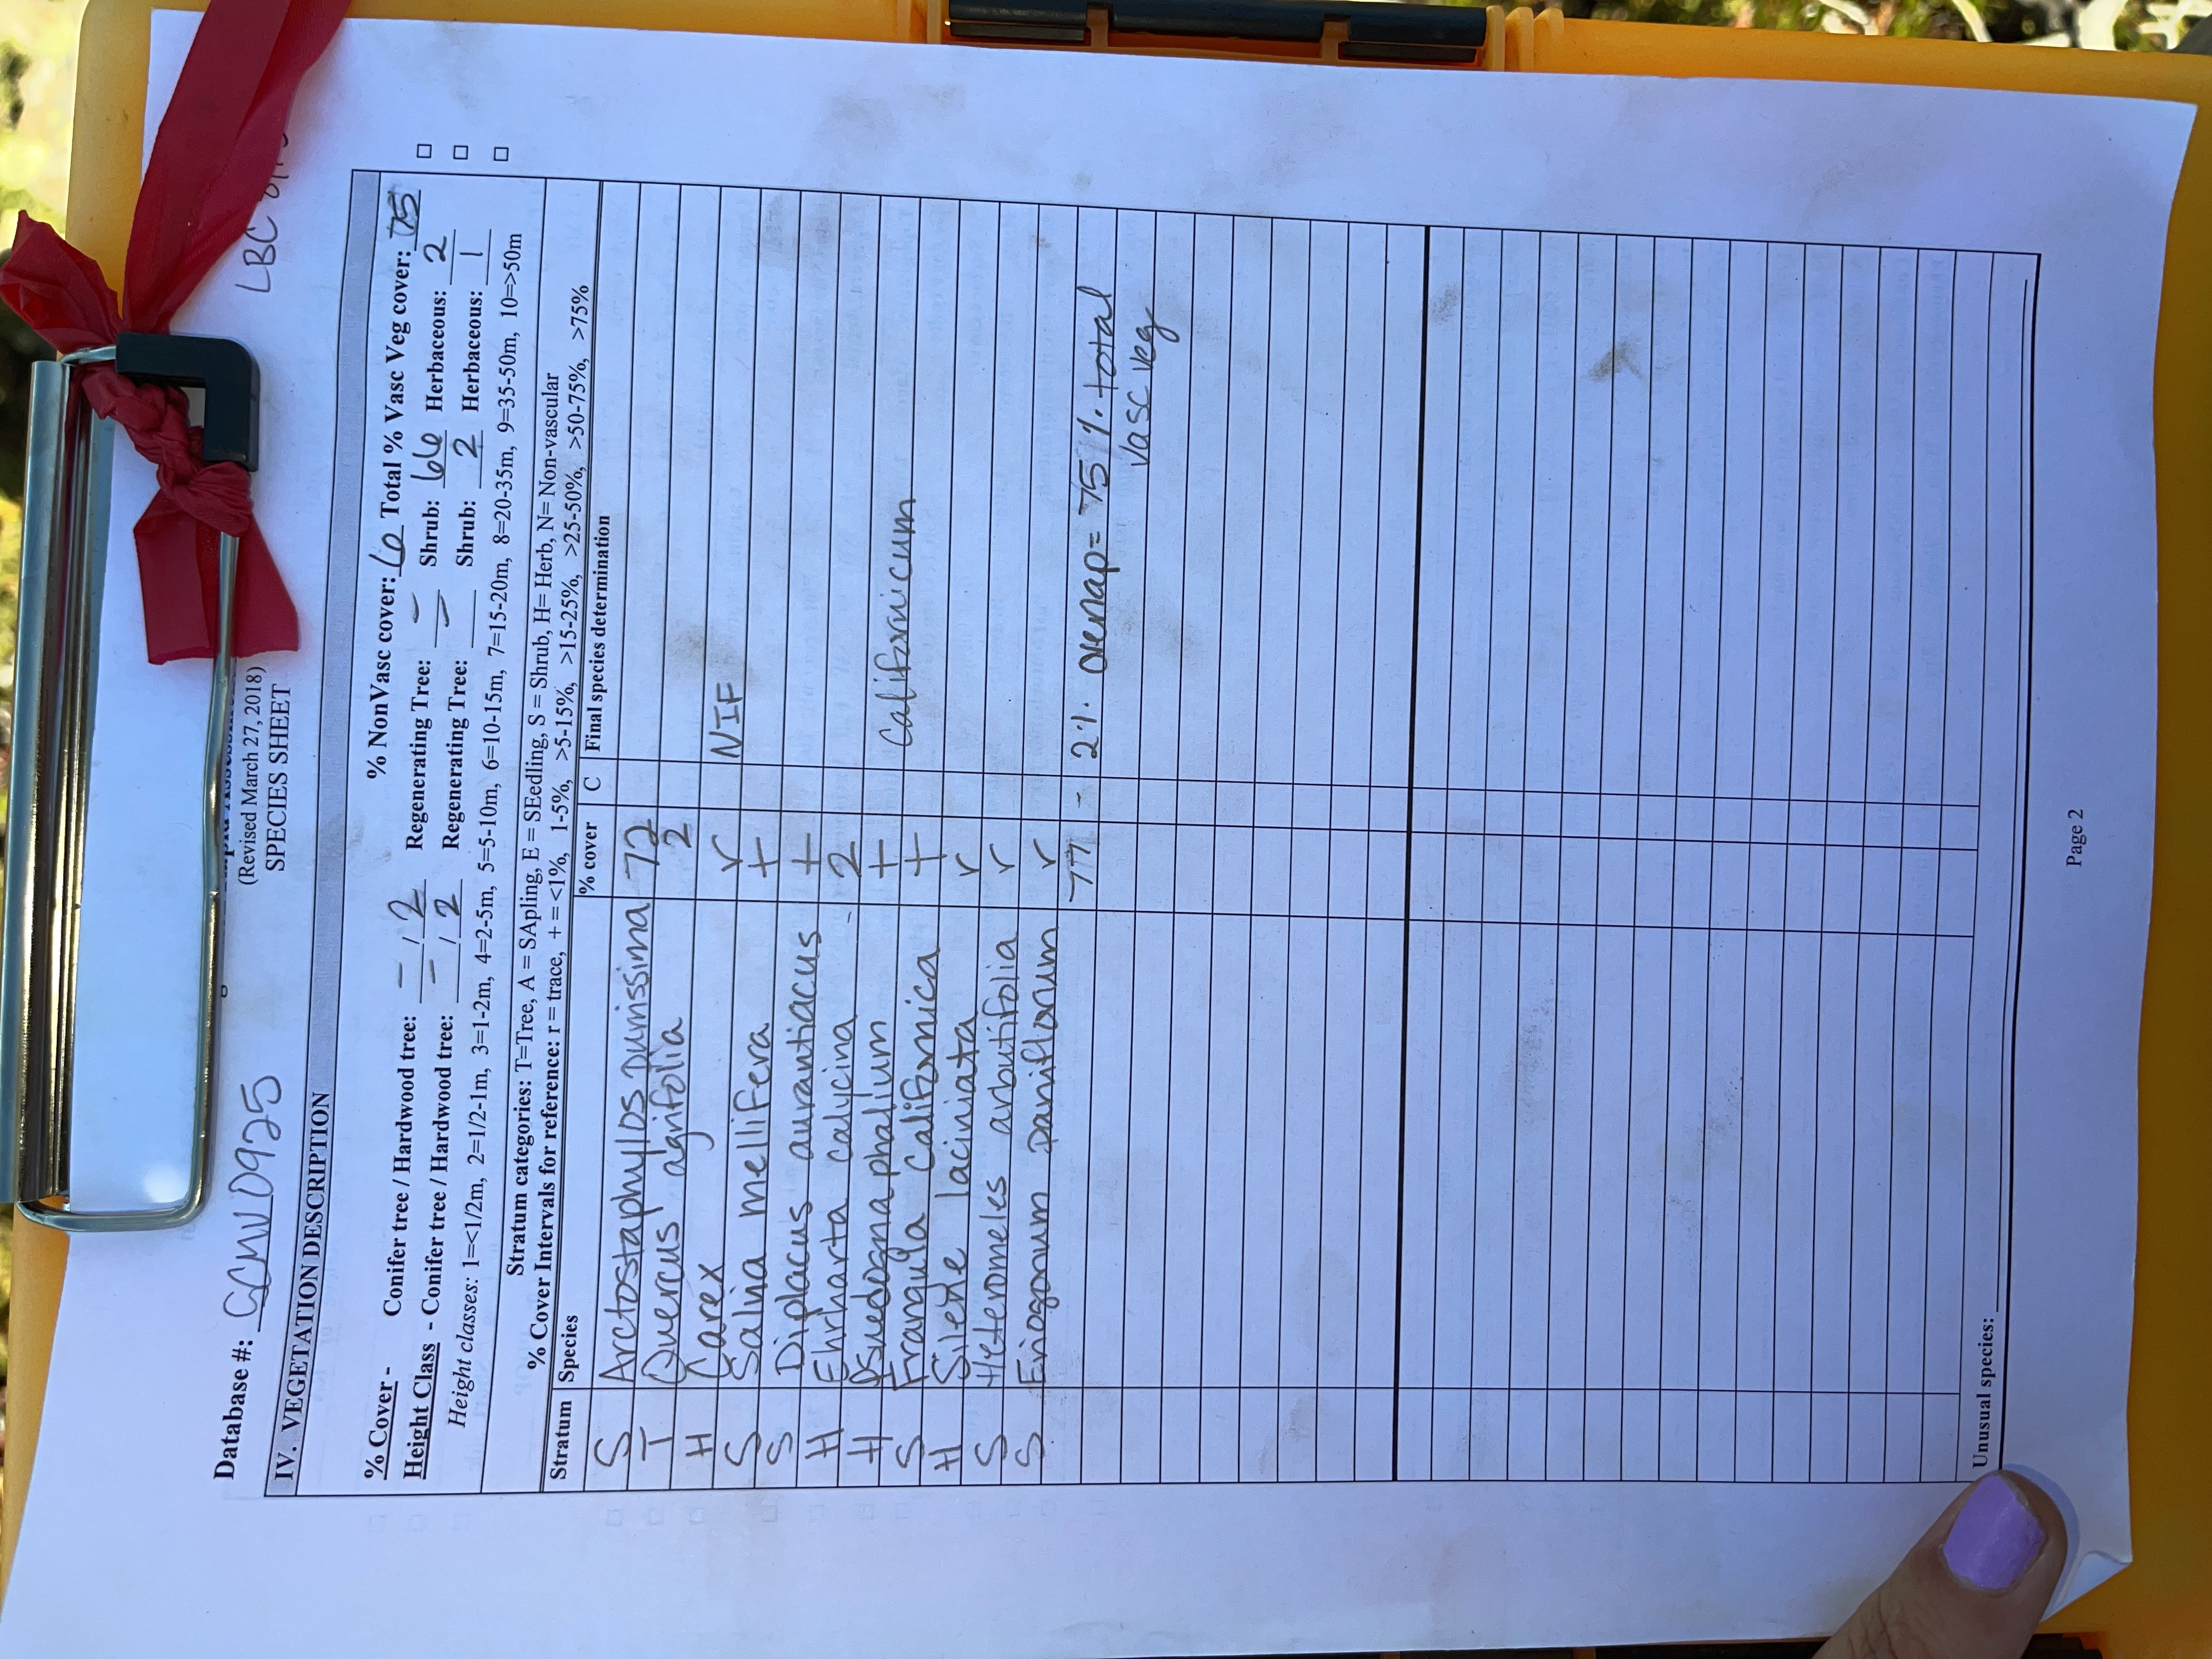 LBC
(Revised March 27, 2018)
SPECIES SHEET
Database #: GCNV0925
IV. VEGETATION DESCRIPTION
% NonVasc cover: 6 Total % Vasc Veg cover: 75
% Cover - Conifer tree / Hardwood tree: - / 2 Regenerating Tree: - Shrub: 66 Herbaceous: 2
Height Class - Conifer tree / Hardwood tree: - / 2 Regenerating Tree: - Shrub: 2 Herbaceous: 1
Height classes: 1=<1/2m, 2=1/2-1m, 3=1-2m, 4=2-5m, 5=5-10m, 6=10-15m, 7=15-20m, 8=20-35m, 9=35-50m, 10=>50m
Stratum categories: T=Tree, A = SApling, E = SEedling, S = Shrub, H= Herb, N= Non-vascular
% Cover Intervals for reference: r = trace, + = <1%, 1-5%, >5-15%, >15-25%, >25-50%, >50-75%, >75%
Stratum Species % cover C Final species determination
S Arctostaphylos purissima 72
T Quercus agrifolia 2
H Carex r NIF
S Salvia mellifera +
S Diplacus aurantiacus +
H Ehrharta calycina 2
H Psuedognaphalium + Californicum
S Frangula californica +
H Silene laciniata r
S Heteromeles arbutifolia r
S Eriogonum parviflorum r
77 - 2% overlap = 75% total
vasc veg
Unusual species:
Page 2